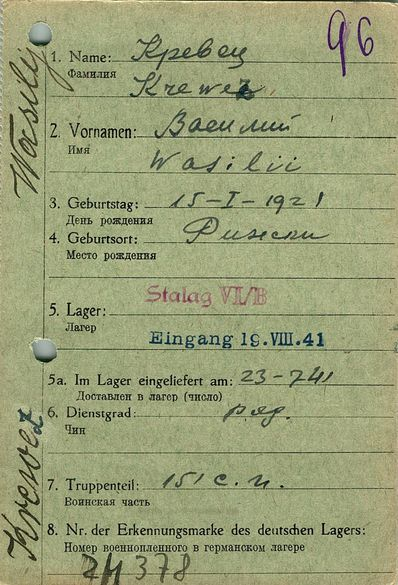 96
1. Name: Кревец
Фамилия
Krewez
2. Vornamen: Василий
Имя
Wasilii
3. Geburtstag: 15-I-1921
День рождения
4. Geburtsort:
Место рождения
Stalag VI/B
5. Lager:
Лагерь
Eingang 19.VIII.41
5a. Im Lager eingeliefert am: 23-741
Доставлен в лагер (число)
6. Dienstgrad: ряд.
Чин
7. Truppenteil: 151 с.п.
Воинская часть
8. Nr. der Erkennungsmarke des deutschen Lagers:
Номер военнопленного в германском лагере
378
Wasilij
Krewez